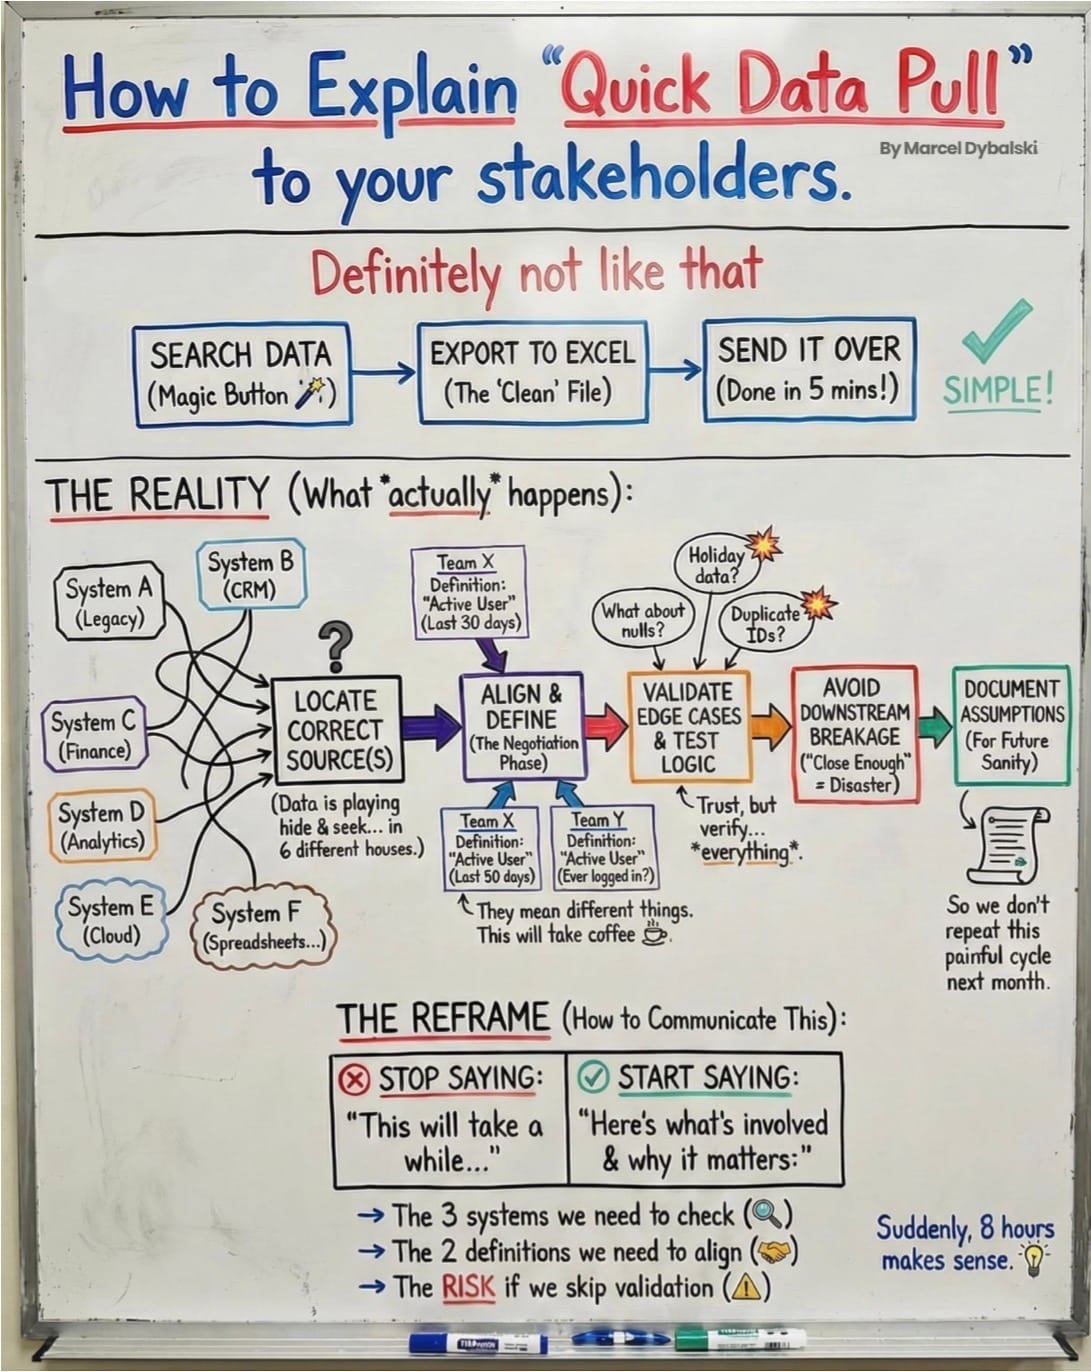 How to Explain “Quick Data Pull”
By Marcel Dybalski
to your stakeholders.
Definitely not like that
SEARCH DATA
(Magic Button )
EXPORT TO EXCEL
(The ‘Clean’ File)
SEND IT OVER
(Done in 5 mins!)
SIMPLE!
THE REALITY (What *actually* happens):
System A
(Legacy)
System B
(CRM)
System C
(Finance)
System D
(Analytics)
System E
(Cloud)
System F
(Spreadsheets...)
?
LOCATE
CORRECT
SOURCE(S)
(Data is playing
hide & seek... in
6 different houses.)
Team X
Definition:
“Active User”
(Last 30 days)
ALIGN &
DEFINE
(The Negotiation
Phase)
Team X
Definition:
“Active User”
(Last 50 days)
Team Y
Definition:
“Active User”
(Ever logged in?)
They mean different things.
This will take coffee .
What about
nulls?
Holiday
data?
Duplicate
IDs?
VALIDATE
EDGE CASES
& TEST
LOGIC
Trust, but
verify...
*everything*.
AVOID
DOWNSTREAM
BREAKAGE
(“Close Enough”
= Disaster)
DOCUMENT
ASSUMPTIONS
(For Future
Sanity)
So we don't
repeat this
painful cycle
next month.
THE REFRAME (How to Communicate This):
STOP SAYING:
“This will take a
while...”
START SAYING:
“Here's what's involved
& why it matters:”
→ The 3 systems we need to check ( )
→ The 2 definitions we need to align ( )
→ The RISK if we skip validation (⚠)
Suddenly, 8 hours
makes sense.